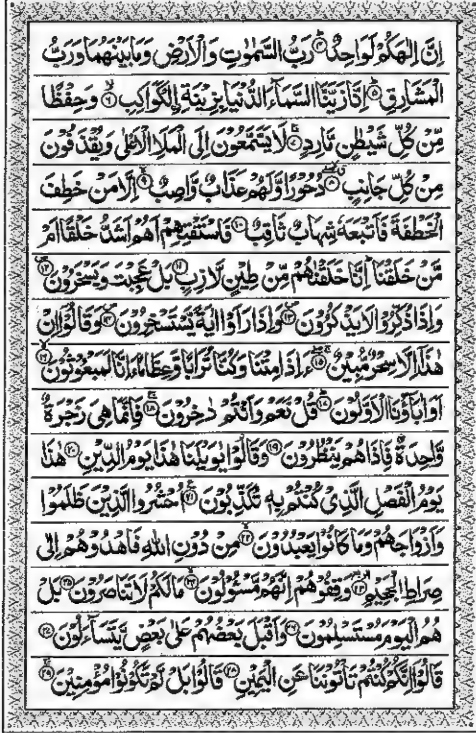 اِنَّ اِلٰهَكُمْ لَوَاحِدٌ ﴿۴﴾ رَبُّ السَّمٰوٰتِ وَالْاَرْضِ وَمَا بَيْنَهُمَا وَرَبُّ
الْمَشَارِقِ ﴿۵﴾ اِنَّا زَيَّنَّا السَّمَآءَ الدُّنْيَا بِزِيْنَةِ ۨالْكَوَاكِبِ ﴿۶﴾ وَحِفْظًا
مِّنْ كُلِّ شَيْطٰنٍ مَّارِدٍ ﴿۷﴾ لَا يَسَّمَّعُوْنَ اِلَى الْمَلَاِ الْاَعْلٰى وَيُقْذَفُوْنَ
مِنْ كُلِّ جَانِبٍ ﴿۸﴾ دُحُوْرًا وَّلَهُمْ عَذَابٌ وَّاصِبٌ ﴿۹﴾ اِلَّا مَنْ خَطِفَ
الْخَطْفَةَ فَاَتْبَعَهٗ شِهَابٌ ثَاقِبٌ ﴿۱۰﴾ فَاسْتَفْتِهِمْ اَهُمْ اَشَدُّ خَلْقًا اَمْ
مَّنْ خَلَقْنَا اِنَّا خَلَقْنٰهُمْ مِّنْ طِيْنٍ لَّازِبٍ ﴿۱۱﴾ بَلْ عَجِبْتَ وَيَسْخَرُوْنَ ﴿۱۲﴾
وَاِذَا ذُكِّرُوْا لَا يَذْكُرُوْنَ ﴿۱۳﴾ وَاِذَا رَاَوْا اٰيَةً يَّسْتَسْخِرُوْنَ ﴿۱۴﴾ وَقَالُوْٓا اِنْ
هٰذَآ اِلَّا سِحْرٌ مُّبِيْنٌ ﴿۱۵﴾ ءَاِذَا مِتْنَا وَكُنَّا تُرَابًا وَّعِظَامًا ءَاِنَّا لَمَبْعُوْثُوْنَ ﴿۱۶﴾
اَوَاٰبَآؤُنَا الْاَوَّلُوْنَ ﴿۱۷﴾ قُلْ نَعَمْ وَاَنْتُمْ دٰخِرُوْنَ ﴿۱۸﴾ فَاِنَّمَا هِيَ زَجْرَةٌ
وَّاحِدَةٌ فَاِذَا هُمْ يَنْظُرُوْنَ ﴿۱۹﴾ وَقَالُوْا يٰوَيْلَنَا هٰذَا يَوْمُ الدِّيْنِ ﴿۲۰﴾ هٰذَا
يَوْمُ الْفَصْلِ الَّذِيْ كُنْتُمْ بِهٖ تُكَذِّبُوْنَ ﴿۲۱﴾ اُحْشُرُوا الَّذِيْنَ ظَلَمُوْا
وَاَزْوَاجَهُمْ وَمَا كَانُوْا يَعْبُدُوْنَ ﴿۲۲﴾ مِنْ دُوْنِ اللّٰهِ فَاهْدُوْهُمْ اِلٰى
صِرَاطِ الْجَحِيْمِ ﴿۲۳﴾ وَقِفُوْهُمْ اِنَّهُمْ مَّسْئُوْلُوْنَ ﴿۲۴﴾ مَا لَكُمْ لَا تَنَاصَرُوْنَ ﴿۲۵﴾ بَلْ
هُمُ الْيَوْمَ مُسْتَسْلِمُوْنَ ﴿۲۶﴾ وَاَقْبَلَ بَعْضُهُمْ عَلٰى بَعْضٍ يَّتَسَآءَلُوْنَ ﴿۲۷﴾
قَالُوْٓا اِنَّكُمْ كُنْتُمْ تَاْتُوْنَنَا عَنِ الْيَمِيْنِ ﴿۲۸﴾ قَالُوْا بَلْ لَّمْ تَكُوْنُوْا مُؤْمِنِيْنَ ﴿۲۹﴾